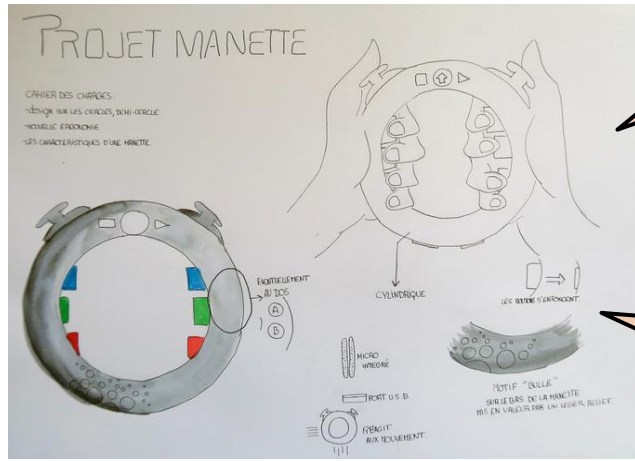 PROJET MANETTE
CAHIER DES CHARGES:
-DESIGN SUR LES CERCLES, DEMI-CERCLE
-NOUVELLE ERGONOMIE
-LES CARACTERISTIQUES D'UNE MANETTE
EVENTUELLEMENT
AU DOS
A
B
CYLINDRIQUE
LES BOUTONS S'ENFONCENT
MICRO
INTEGRÉ
PORT U.S.B
RÉAGIT
AUX MOUVEMENT.
MOTIF "BULLE"
SUR LE BAS DE LA MANETTE
MIS EN VALEUR PAR UN LEGER RELIEF